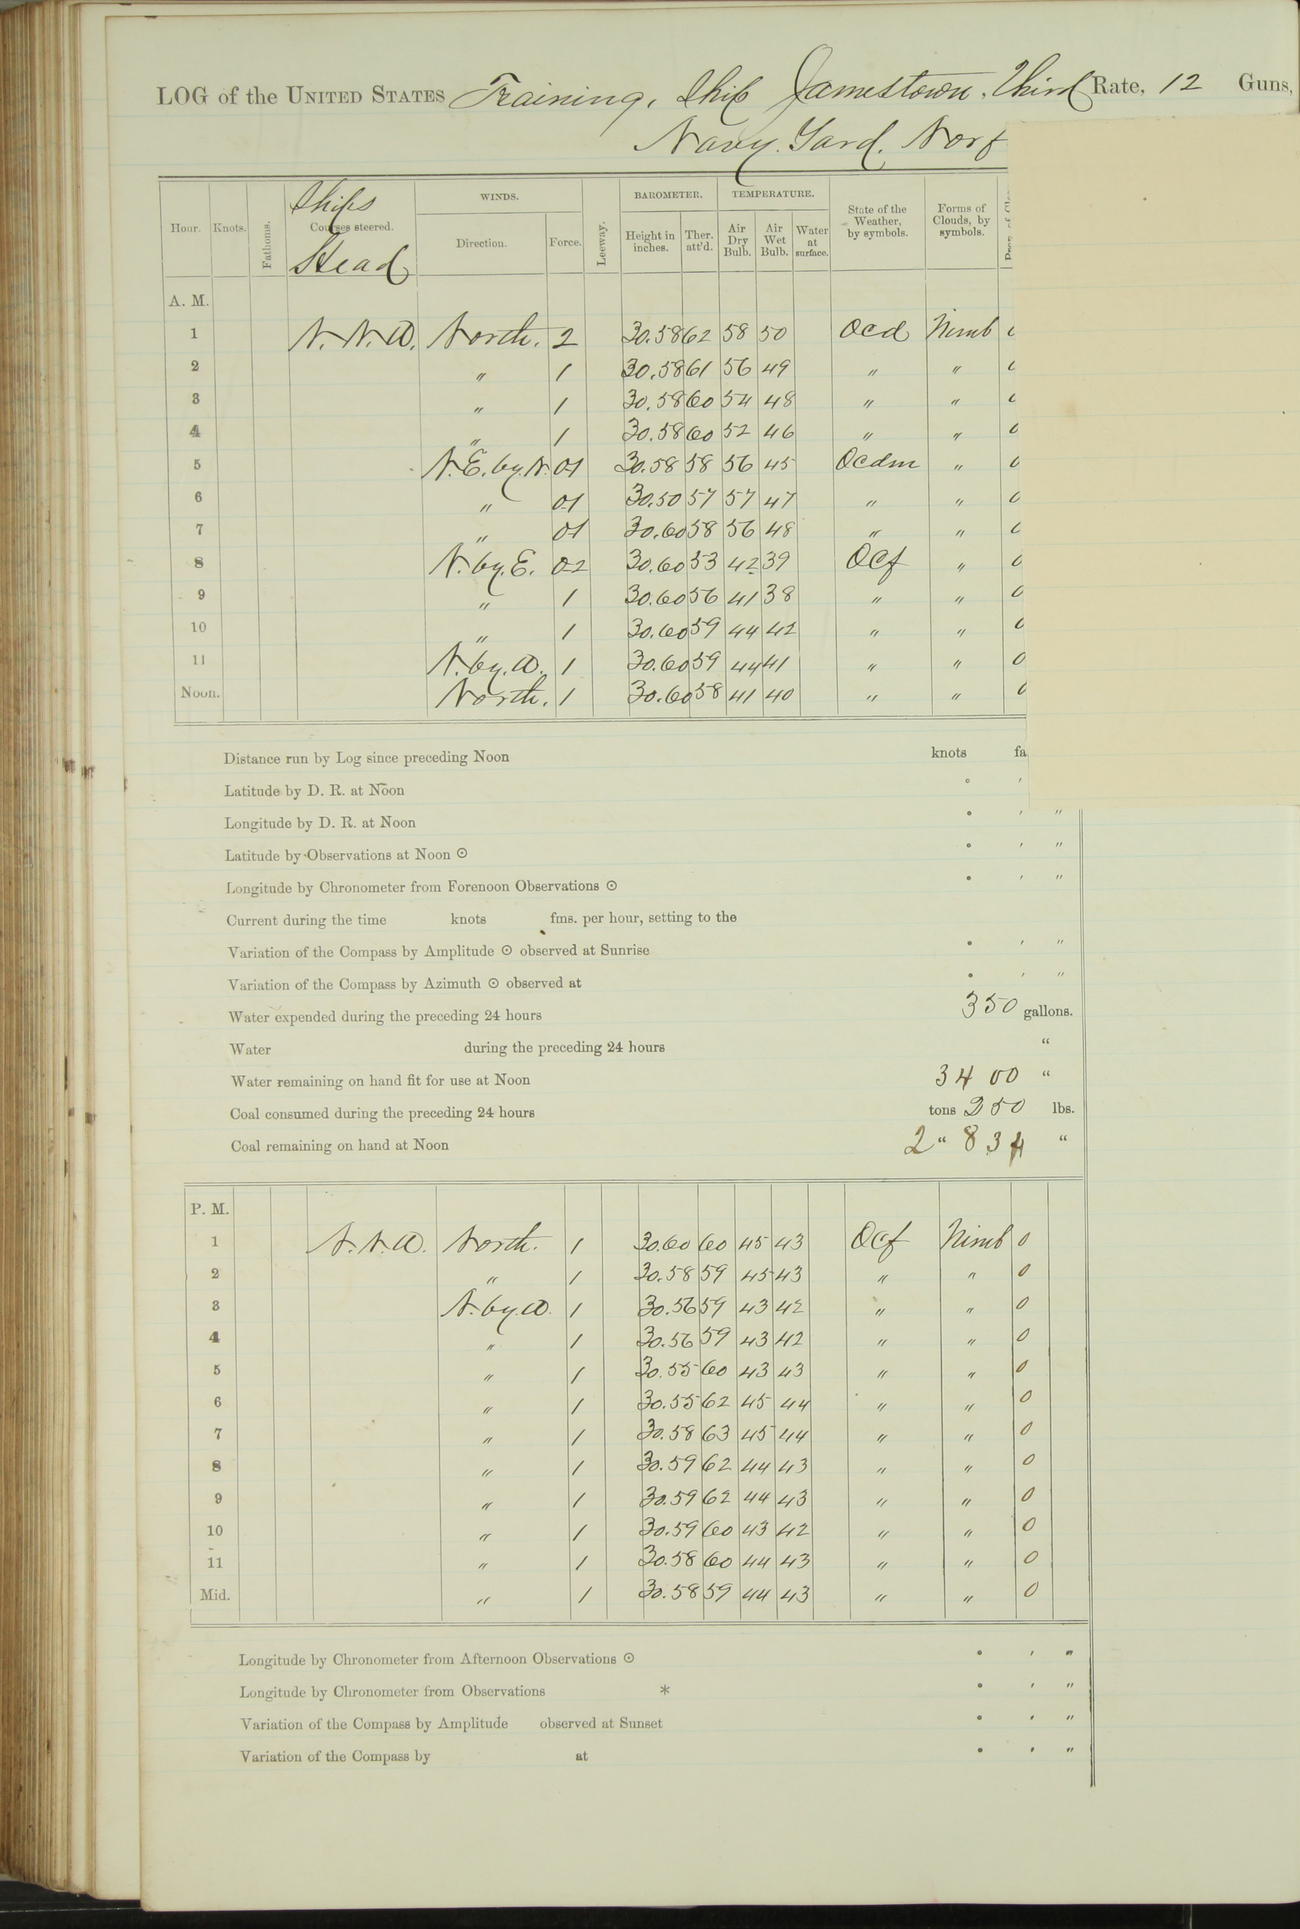 LOG of the UNITED STATES Training, Ship Jamestown, Third Rate, 12 Guns,
Navy Yard, Norf
Hour. Knots. Fathoms. Ships Courses steered. Head WINDS. Direction. Force. Leeway. BAROMETER. Height in inches. Ther. att'd. TEMPERATURE. Air Dry Bulb. Air Wet Bulb. Water at surface. State of the Weather, by symbols. Forms of Clouds, by symbols.
A. M.
1 N.N.W. North. 2 30.58 62 58 50 Ocd Nimb
2 " 1 30.58 61 56 49 " "
3 " 1 30.58 60 54 48 " "
4 " 1 30.58 60 52 46 " "
5 N.E. by N. 01 30.58 58 56 45 Ocdm "
6 " 01 30.50 57 57 47 " "
7 " 01 30.60 58 56 48 " "
8 N. by E. 0-2 30.60 53 42 39 Ocf "
9 " 1 30.60 56 41 38 " "
10 " 1 30.60 59 44 42 " "
11 N. by W. 1 30.60 59 44 41 " "
Noon. North. 1 30.60 58 41 40 " "
Distance run by Log since preceding Noon knots fa
Latitude by D. R. at Noon ° '
Longitude by D. R. at Noon ° ' "
Latitude by Observations at Noon ☉ ° ' "
Longitude by Chronometer from Forenoon Observations ☉ ° ' "
Current during the time knots fms. per hour, setting to the
Variation of the Compass by Amplitude ☉ observed at Sunrise ° ' "
Variation of the Compass by Azimuth ☉ observed at ° ' "
Water expended during the preceding 24 hours 350 gallons.
Water during the preceding 24 hours "
Water remaining on hand fit for use at Noon 3400 "
Coal consumed during the preceding 24 hours tons 250 lbs.
Coal remaining on hand at Noon 2 " 834 "
P. M.
1 N.N.W. North. 1 30.60 60 45 43 Ocf Nimb 0
2 " 1 30.58 59 45 43 " " 0
3 N. by W. 1 30.56 59 43 42 " " 0
4 " 1 30.56 59 43 42 " " 0
5 " 1 30.55 60 43 43 " " 0
6 " 1 30.55 62 45 44 " " 0
7 " 1 30.58 63 45 44 " " 0
8 " 1 30.59 62 44 43 " " 0
9 " 1 30.59 62 44 43 " " 0
10 " 1 30.59 60 43 42 " " 0
11 " 1 30.58 60 44 43 " " 0
Mid. " 1 30.58 59 44 43 " " 0
Longitude by Chronometer from Afternoon Observations ☉ ° ' "
Longitude by Chronometer from Observations * ° ' "
Variation of the Compass by Amplitude observed at Sunset ° ' "
Variation of the Compass by at ° ' "